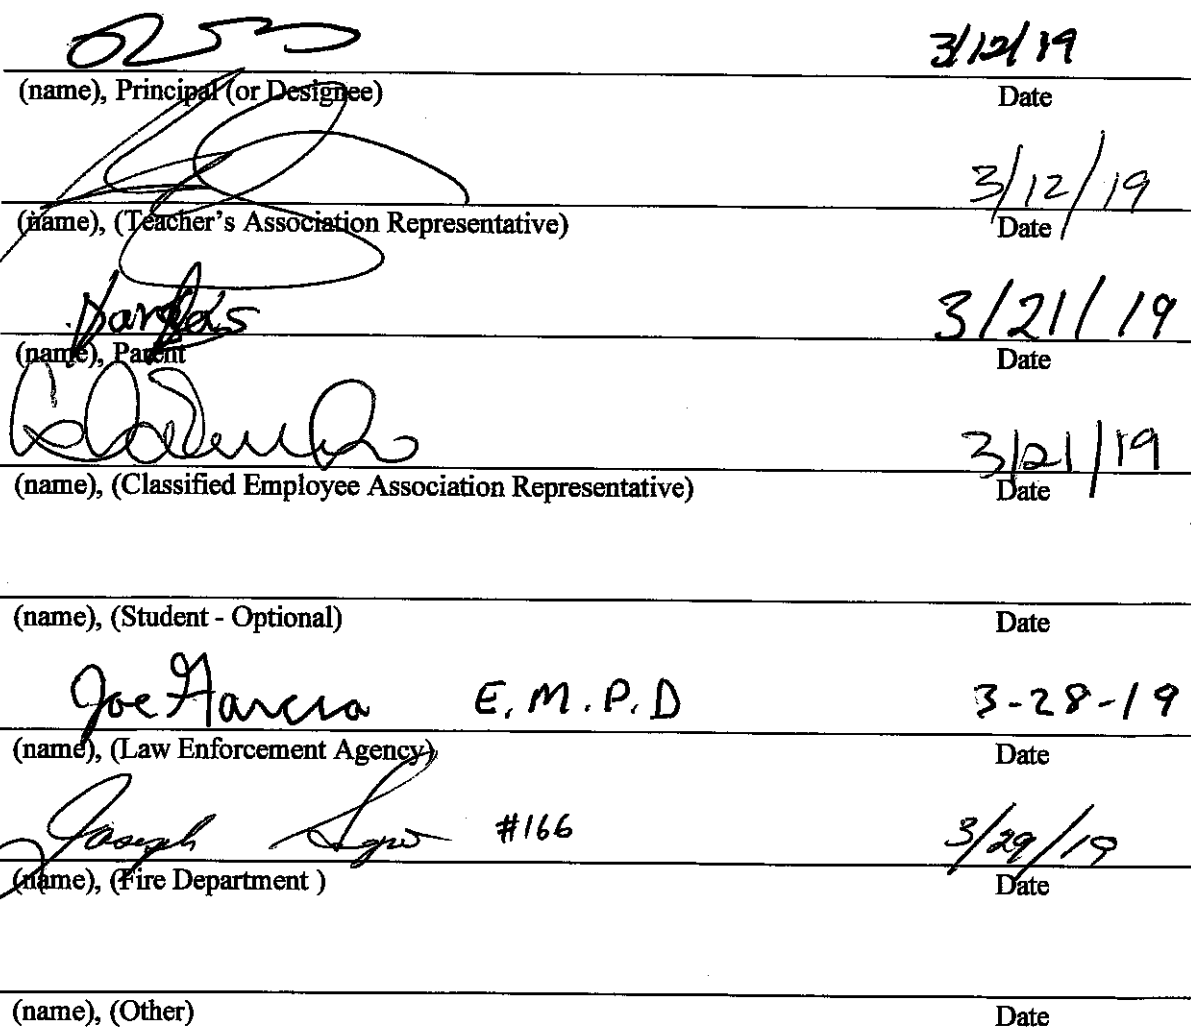 3/12/19
(name), Principal (or Designee) Date
3/12/19
(name), (Teacher's Association Representative) Date
3/21/19
(name), Parent Date
3/21/19
(name), (Classified Employee Association Representative) Date
(name), (Student - Optional) Date
Joe Garcia E.M.P.D 3-28-19
(name), (Law Enforcement Agency) Date
Joseph #166 3/29/19
(name), (Fire Department ) Date
(name), (Other) Date